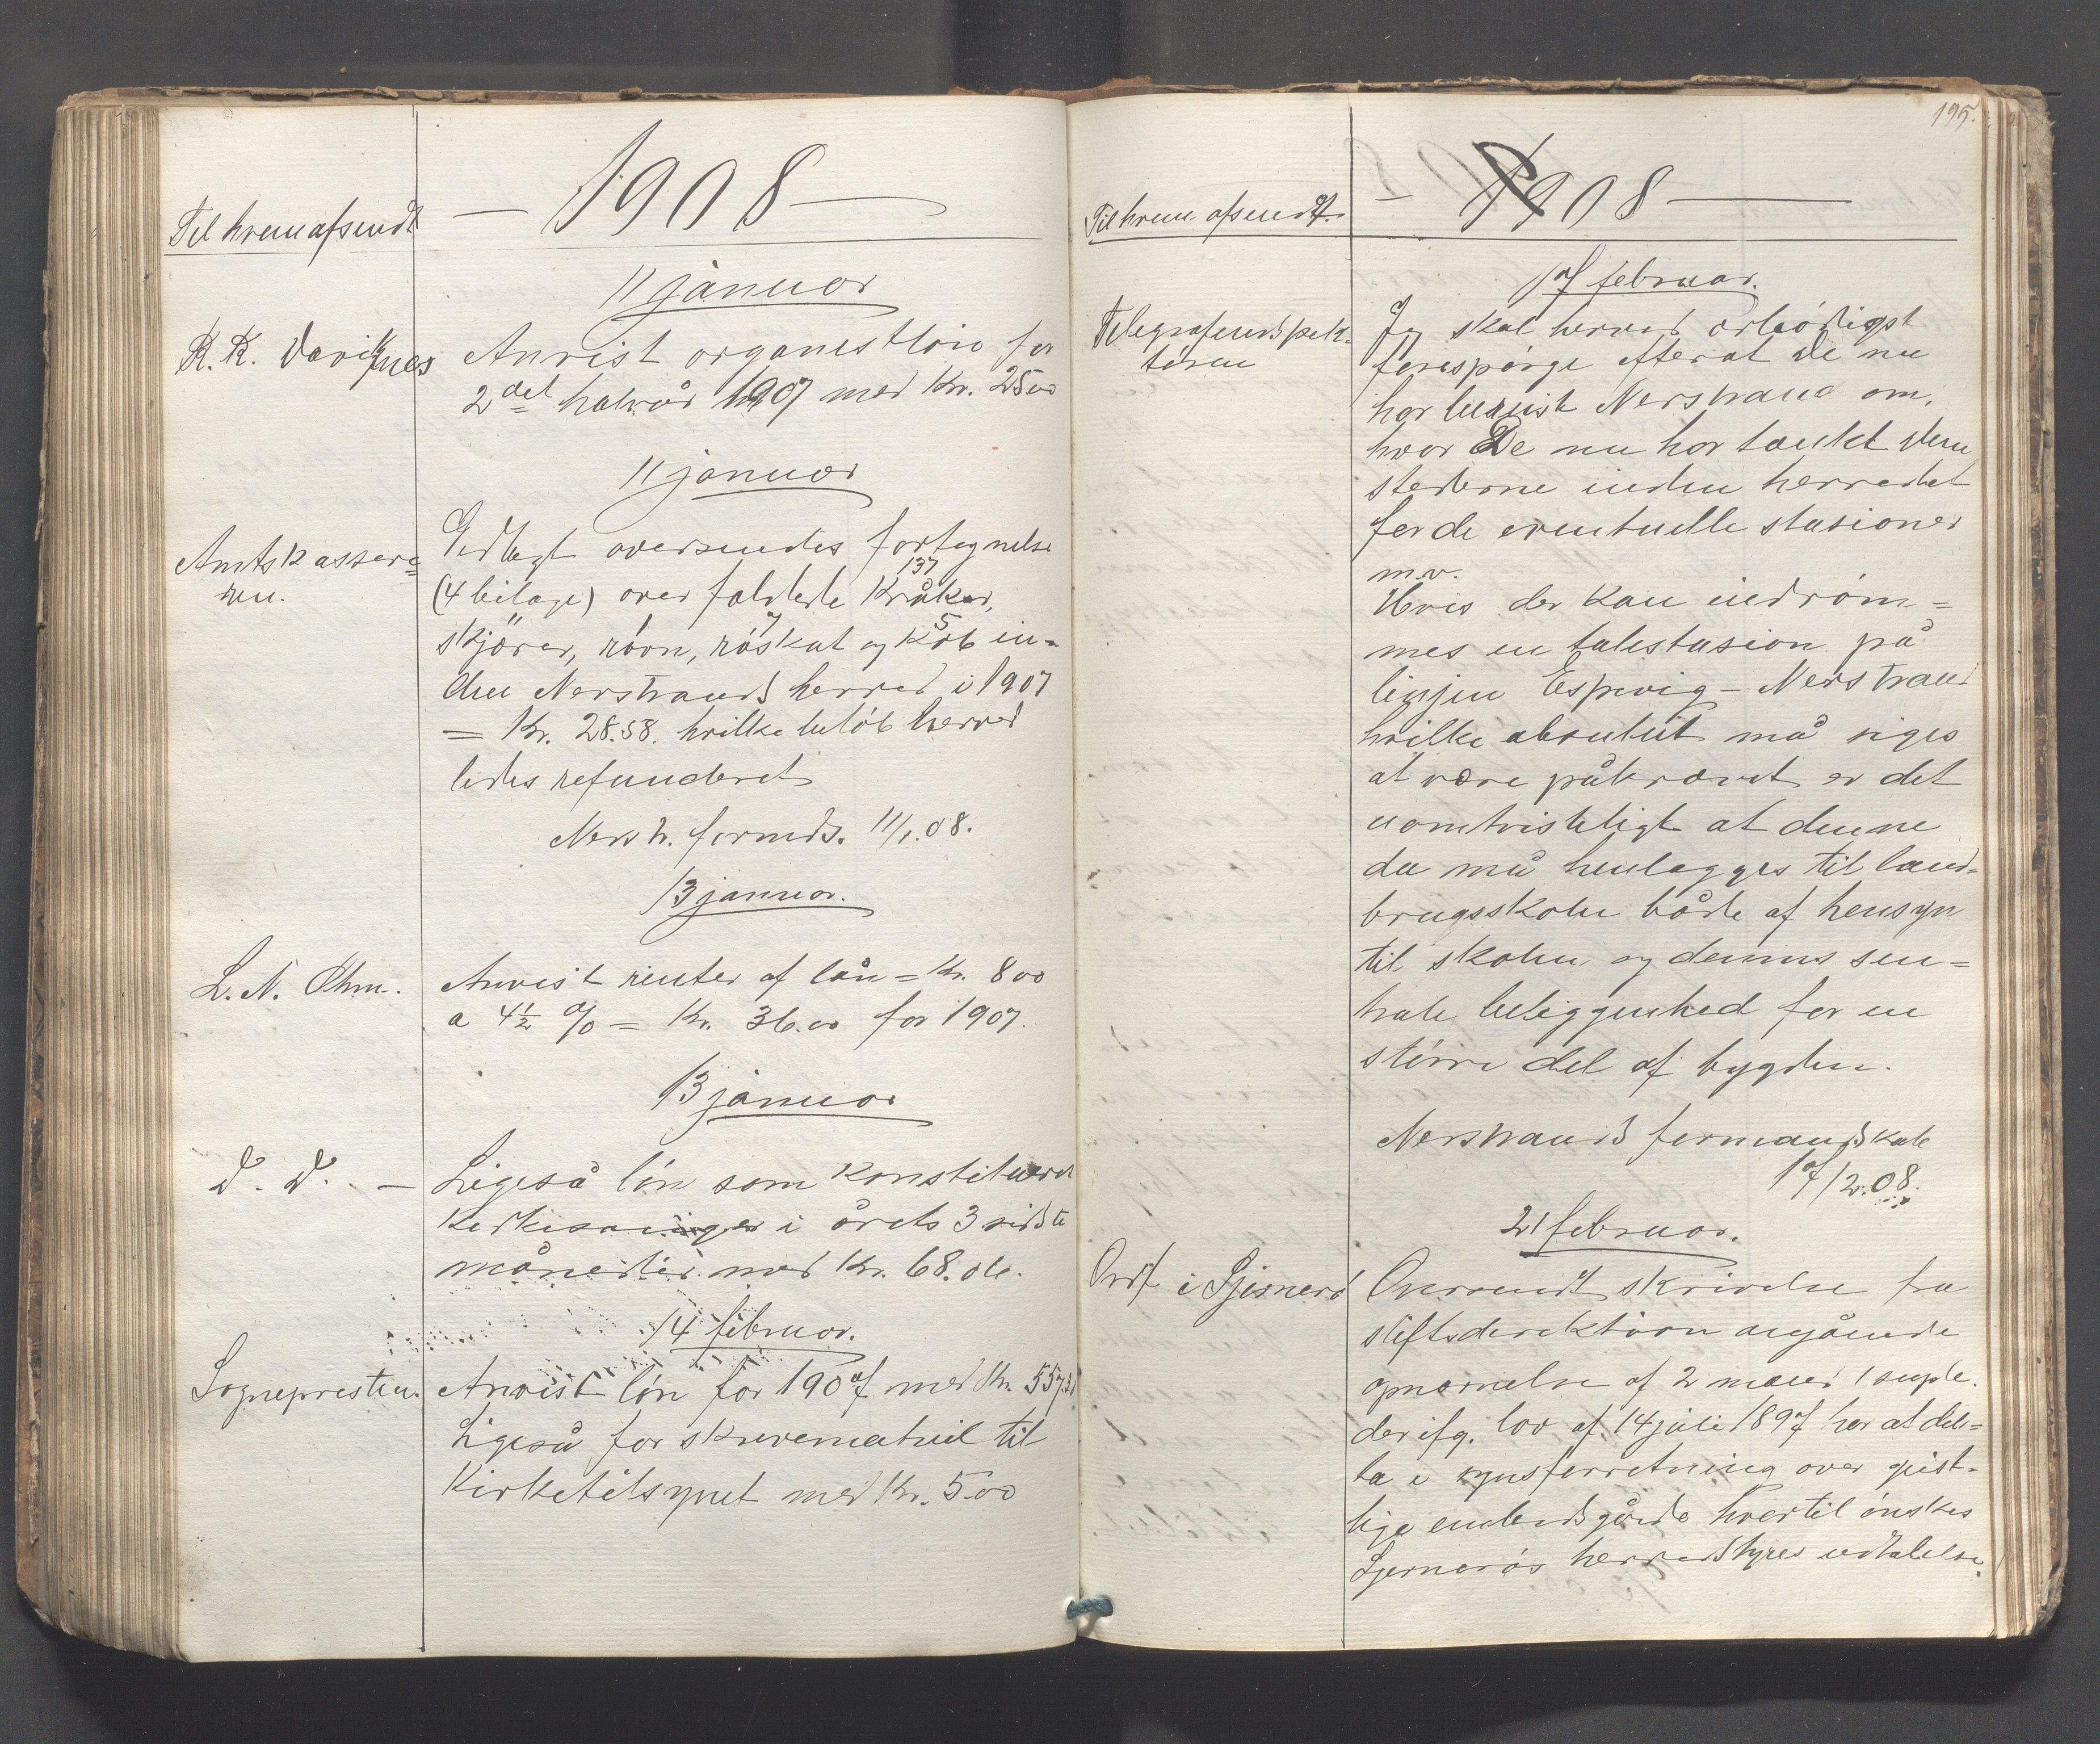 Til hvem afsendt
— 1908 —
11 januar
R. K. Dauiknes
Anvist organistløn for
2det halvår 1907 med Kr. 25 00
11 januar
Amtskassere=
ren.
Vedlagt oversendes fortegnelse
137
(4 bilage) over faldede Kråker,
" 1 7 5
skjører, ravn, røskat og Kob in=
den Nerstrands herred i 1907
= Kr. 28.58. hvilke beløb herved
bedes refunderet
Nerstr. formds. 11/1.08.
13 januar.
L. N. Ohm.
Anvist renter af lån = Kr. 800
a 4½ % = Kr. 36.00 for 1907.
13 januar
D. D. —
Ligeså løn som Konstitueret
Kirkesanger i årets 3 sidste
måneder med Kr. 68.06.
14 februar.
Sognepresten.
Anvist løn for 1907 med Kr.
Ligeså for skrivematriel til
Kirketilsynet med Kr. 5.00
195.
Til hvem afsendt.
— 1908 —
17 februar.
Telegrafindspek-
tøren
Jeg skal herved ærbødigst
forespørge efterat De nu
har bereist Nerstrand om,
hvor De nu har tænkt Dem
stederne inden herredet
for de eventuelle stasioner
m.v.
Hvis der kan indrøm=
mes en talestasion på
linjen Espevig – Nerstrand
hvilke absolut må siges
at være påkrævet er det
uomtvisteligt at denne
da må henlægges til land=
brugsskolen både af hensyn
til skolen og dennes sen=
trale beliggenhed for en
større del af bygden.
Nerstrands formandskab
17/2.08.
21 februar.
Ordf i Sjernerø
Oversendt skrivelse fra
stiftsdirektionen angående
opnævnelse af 2 mænd 1 suple.
der ifg. lov af 14 juli 1897 har at del=
ta i synsforretning over geist-
lige embedsgårde hvortil ønskes
Sjernerøs herredstyres udtalelse.